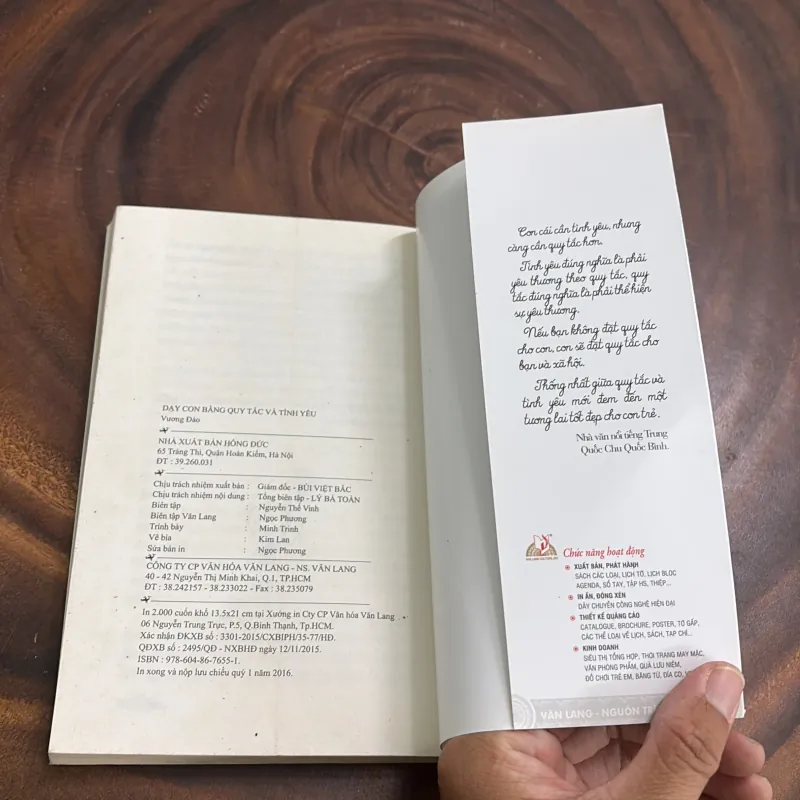 DẠY CON BẰNG QUY TẮC VÀ TÌNH YÊU
Vương Đào
NHÀ XUẤT BẢN HỒNG ĐỨC
65 Tràng Thi, Quận Hoàn Kiếm, Hà Nội
ĐT : 39.260.031
Chịu trách nhiệm xuất bản : Giám đốc - BÙI VIỆT BẮC
Chịu trách nhiệm nội dung : Tổng biên tập - LÝ BÁ TOÀN
Biên tập : Nguyễn Thế Vinh
Biên tập Văn Lang : Ngọc Phương
Trình bày : Minh Trinh
Vẽ bìa : Kim Lan
Sửa bản in : Ngọc Phương
CÔNG TY CP VĂN HÓA VĂN LANG - NS. VĂN LANG
40 - 42 Nguyễn Thị Minh Khai, Q.1, TP.HCM
ĐT : 38.242157 - 38.233022 - Fax : 38.235079
In 2.000 cuốn khổ 13.5x21 cm tại Xưởng in Cty CP Văn hóa Văn Lang
06 Nguyễn Trung Trực, P.5, Q.Bình Thạnh, Tp.HCM.
Xác nhận ĐKXB số : 3301-2015/CXBIPH/35-77/HĐ.
QĐXB số : 2495/QĐ - NXBHĐ ngày 12/11/2015.
ISBN : 978-604-86-7655-1.
In xong và nộp lưu chiểu quý 1 năm 2016.
Con cái cần tình yêu, nhưng
càng cần quy tắc hơn.
Tình yêu đúng nghĩa là phải
yêu thương theo quy tắc, quy
tắc đúng nghĩa là phải thể hiện
sự yêu thương.
Nếu bạn không đặt quy tắc
cho con, con sẽ đặt quy tắc cho
bạn và xã hội.
Thống nhất giữa quy tắc và
tình yêu mới đem đến một
tương lai tốt đẹp cho con trẻ.
Nhà văn nổi tiếng Trung
Quốc Chu Quốc Bình.
Chức năng hoạt động
XUẤT BẢN, PHÁT HÀNH
SÁCH CÁC LOẠI, LỊCH TỜ, LỊCH BLOC
AGENDA, SỔ TAY, TẬP HS, THIỆP...
IN ẤN, ĐÓNG XÉN
DÂY CHUYỀN CÔNG NGHỆ HIỆN ĐẠI
THIẾT KẾ QUẢNG CÁO
CATALOGUE, BROCHURE, POSTER, TỜ GẤP,
CÁC THỂ LOẠI VỀ LỊCH, SÁCH, TẠP CHÍ...
KINH DOANH
SIÊU THỊ TỔNG HỢP, THỜI TRANG MAY MẶC,
VĂN PHÒNG PHẨM, QUÀ LƯU NIỆM,
ĐỒ CHƠI TRẺ EM, BĂNG TỪ, ĐĨA CD,
VĂN LANG - NGUỒN